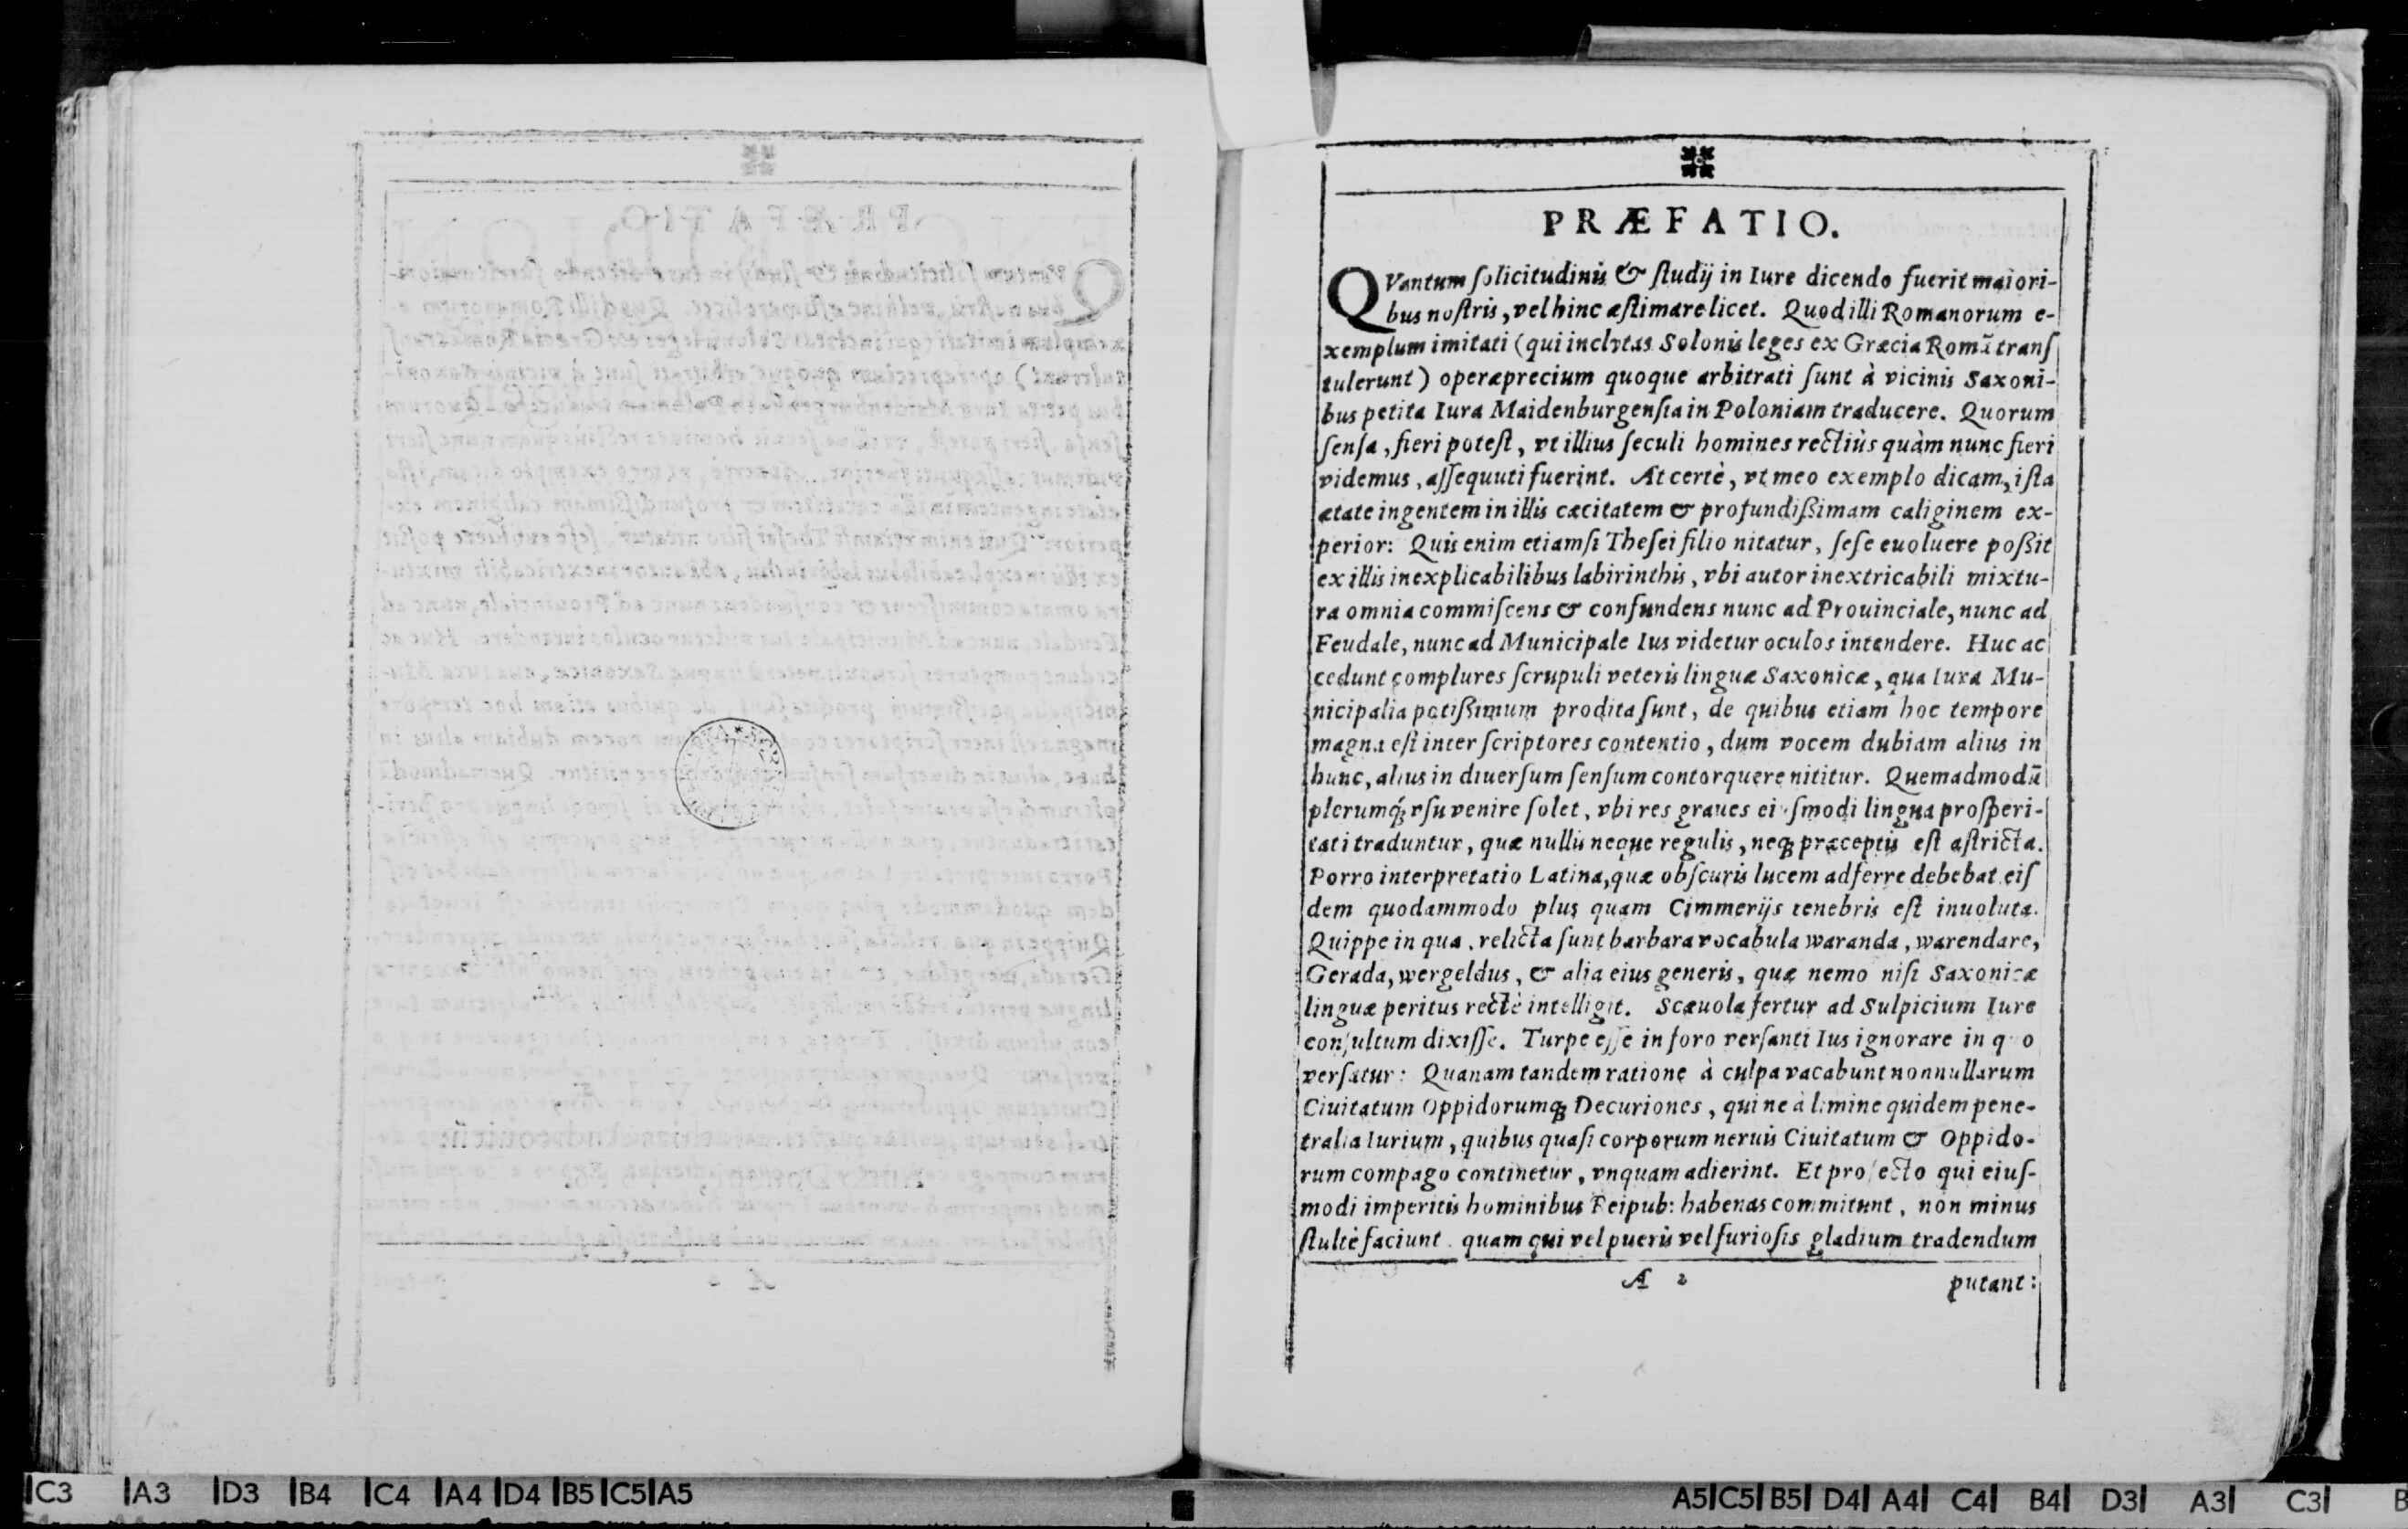 PRÆFATIO.
QVantum ſolicitudinis & ſtudij in Iure dicendo fuerit maiori-
bus noſtris, vel hinc æſtimare licet. Quod illi Romanorum e-
xemplum imitati (qui inclytas Solonis leges ex Græcia Romā tranſ
tulerunt) operæprecium quoque arbitrati ſunt à vicinis Saxoni-
bus petita Iura Maidenburgenſia in Poloniam traducere. Quorum
ſenſa, fieri poteſt, vt illius ſeculi homines rectiùs quàm nunc fieri
videmus, aſſequuti fuerint. At certè, vt meo exemplo dicam, iſta
ætate ingentem in illis cæcitatem & profundiſſimam caliginem ex-
perior: Quis enim etiamſi Theſei filio nitatur, ſeſe euoluere poſſit
ex illis inexplicabilibus labirinthis, vbi autor inextricabili mixtu-
ra omnia commiſcens & confundens nunc ad Prouinciale, nunc ad
Feudale, nunc ad Municipale Ius videtur oculos intendere. Huc ac
cedunt complures ſcrupuli veteris linguæ Saxonicæ, qua Iura Mu-
nicipalia potiſſimum prodita ſunt, de quibus etiam hoc tempore
magna eſt inter ſcriptores contentio, dum vocem dubiam alius in
hunc, alius in diuerſum ſenſum contorquere nititur. Quemadmodū
plerumq́ꝫ vſu venire ſolet, vbi res graues eiuſmodi lingua proſperi-
tati traduntur, quæ nullis neque regulis, neqꝫ præceptis eſt aſtricta.
Porro interpretatio Latina, quæ obſcuris lucem adferre debebat eiſ
dem quodammodo plus quam Cimmerijs tenebris eſt inuoluta.
Quippe in qua relicta ſunt barbara vocabula waranda, warendare,
Gerada, wergeldus, & alia eius generis, quæ nemo niſi Saxonicæ
linguæ peritus rectè intelligit. Scæuola fertur ad Sulpicium Iure
conſultum dixiſſe. Turpe eſſe in foro verſanti Ius ignorare in quo
verſatur: Quanam tandem ratione à culpa vacabunt nonnullarum
Ciuitatum Oppidorumqꝫ Decuriones, qui ne à limine quidem pene-
tralia Iurium, quibus quaſi corporum neruis Ciuitatum & Oppido-
rum compago continetur, vnquam adierint. Et profecto qui eiuſ-
modi imperitis hominibus Reipub: habenas commitunt, non minus
ſtultè faciunt quam qui vel pueris vel furioſis gladium tradendum
A 2
putant:
C3 A3 D3 B4 C4 A4 D4 B5 C5 A5
A5 C5 B5 D4 A4 C4 B4 D3 A3 C3 B